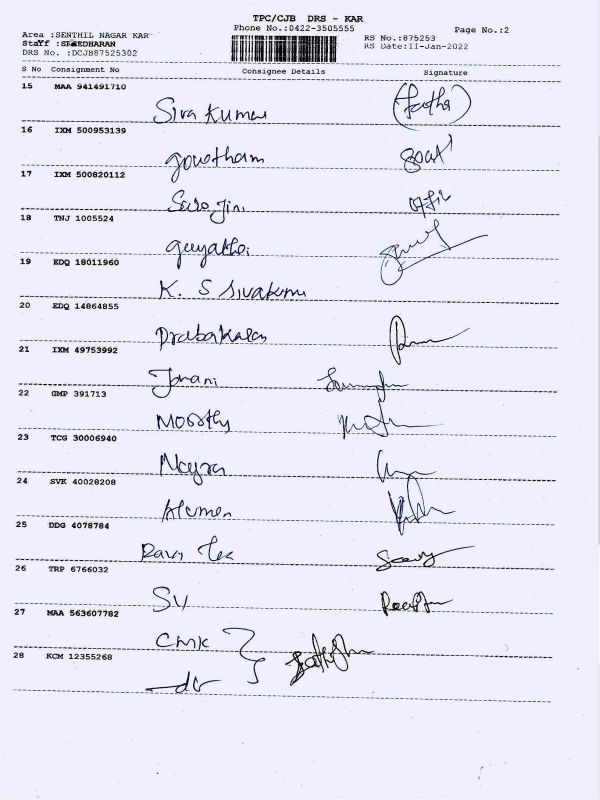 TPC/CJB DRS - KAR
Phone No.:0422-3505555
Page No.:2
Area :SENTHIL NAGAR KAR
RS No.:875253
Staff :SREEDHARAN
RS Date:11-Jan-2022
DRS No. :DCJB87525302
S No Consignment No Consignee Details Signature
15 MAA 941491710
Siva Kumar
16 IXM 500953139
gowtham
17 IXM 500820112
Saro Jini
18 TNJ 1005524
gayathri
19 EDQ 18011960
K. S Sivakumar
20 EDQ 14864855
Prabakaran
21 IXM 49753992
Janani
22 GMP 391713
Moorthy
23 TCG 30006940
Nayra
24 SVK 40028208
25 DDG 4078784
26 TRP 6766032
SV
27 MAA 563607782
CMK
28 KCM 12355268